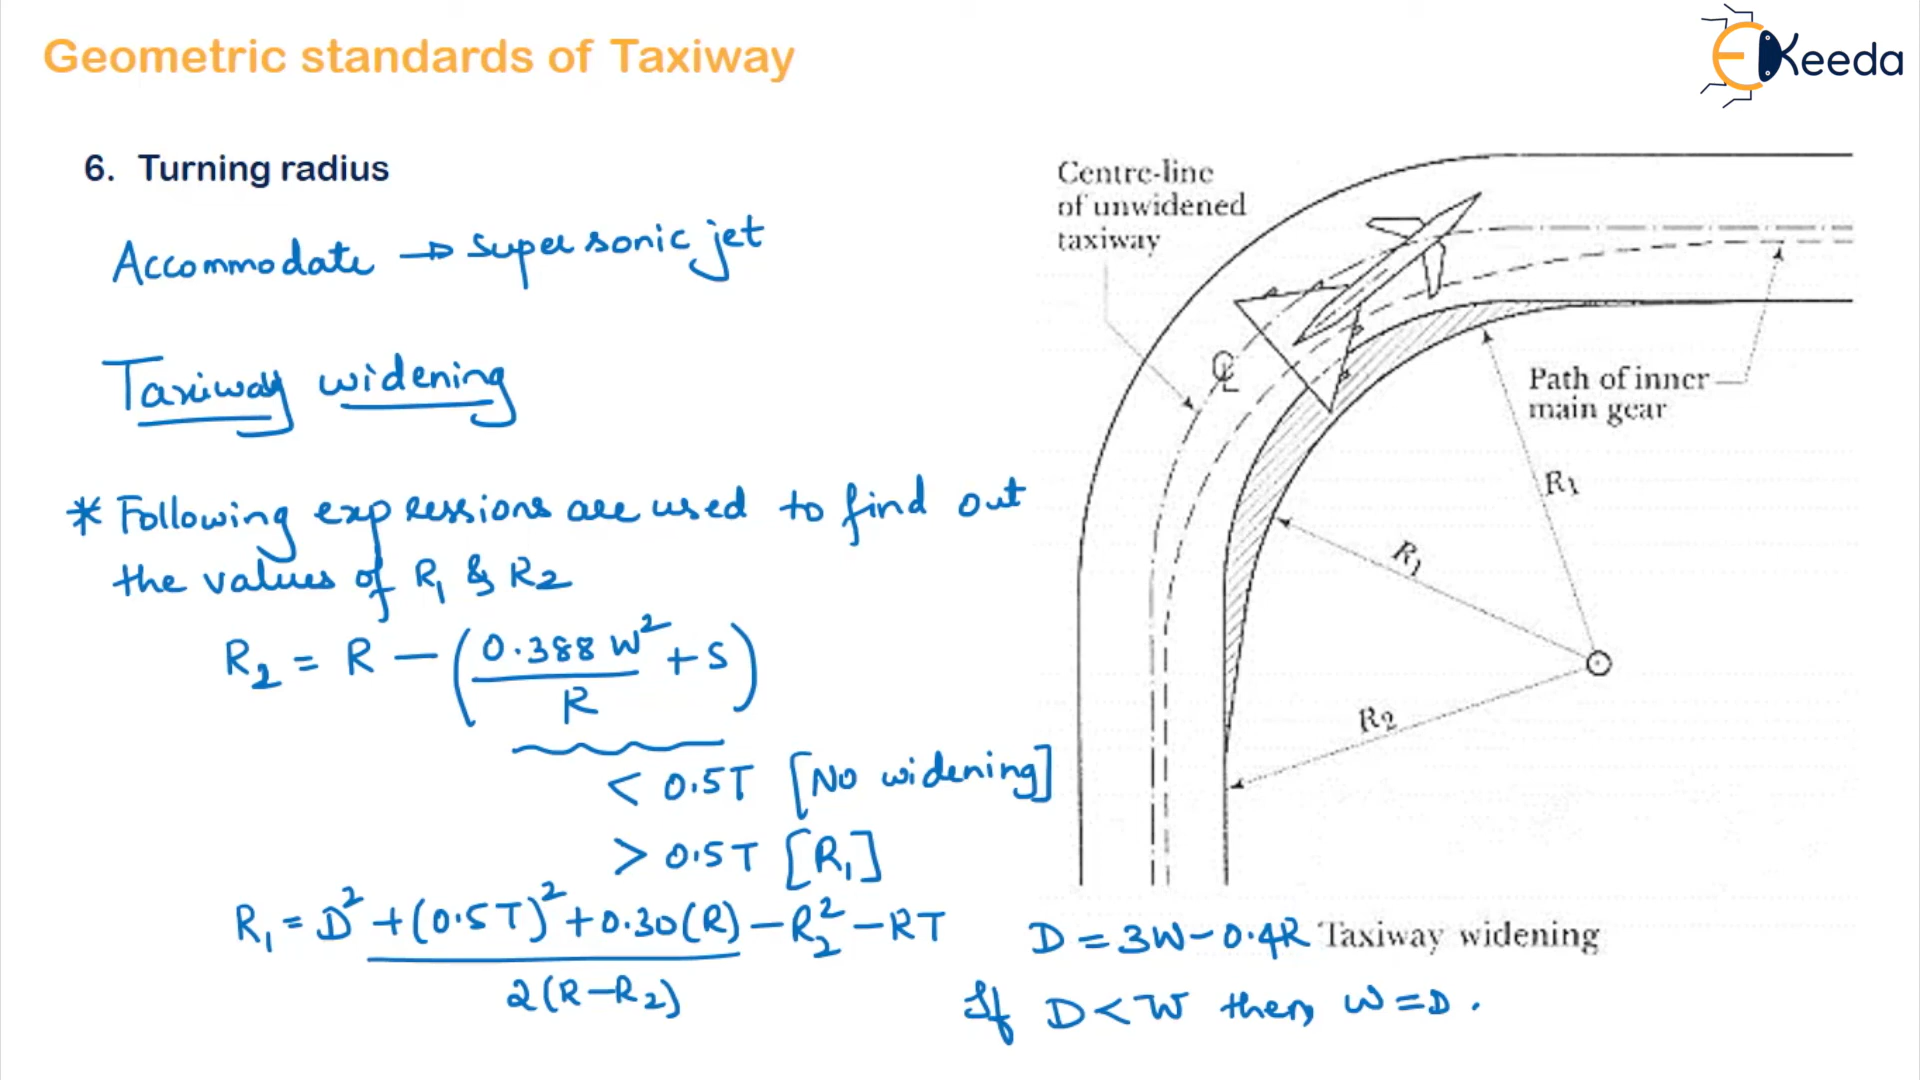 Geometric standards of Taxiway
EKeeda
6. Turning radius
Accommodate → supersonic jet
Taxiway widening
* Following expressions are used to find out
the values of R₁ & R₂
R₂ = R − (0.388 W² / R + S)
< 0.5T [No widening]
> 0.5T [R₁]
R₁ = D² + (0.5T)² + 0.30(R) − R₂² − RT
2(R−R₂)
D = 3W − 0.4R
If D < W then, W = D.
Centre-line
of unwidened
taxiway
CL
Path of inner
main gear
R₁
R₁
R₂
Taxiway widening